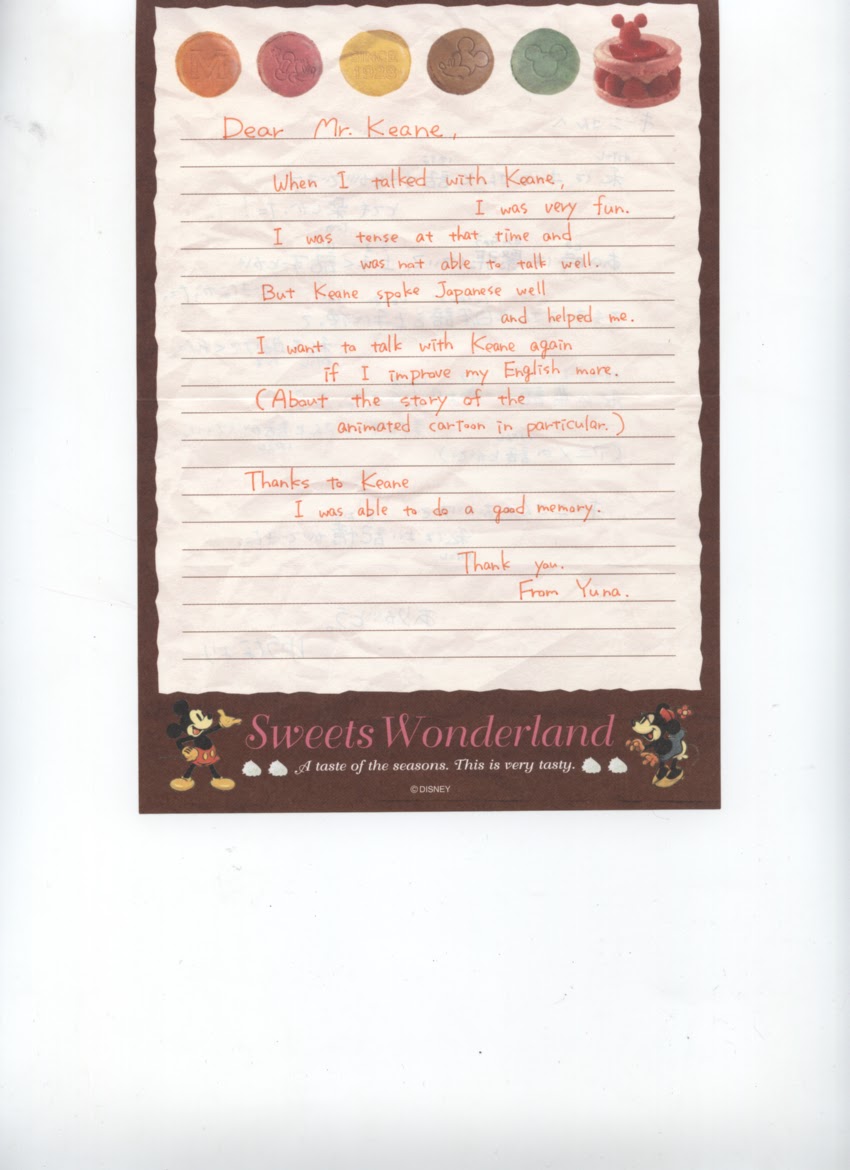 M
SINCE
1928
Dear Mr. Keane,
When I talked with Keane,
I was very fun.
I was tense at that time and
was not able to talk well.
But Keane spoke Japanese well
and helped me.
I want to talk with Keane again
if I improve my English more.
(About the story of the
animated cartoon in particular.)
Thanks to Keane
I was able to do a good memory.
Thank you.
From Yuna.
Sweets Wonderland
A taste of the seasons. This is very tasty.
© DISNEY